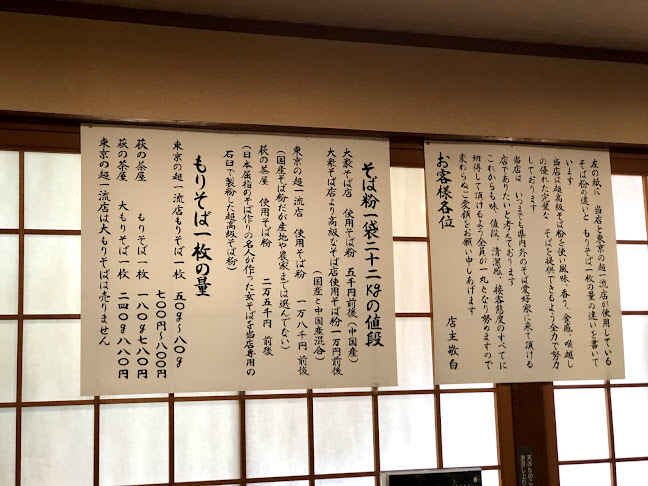 左の紙に 当店と東京の超一流店が使用している
そば粉の違いと もりそば一枚の量の違いを書いて
います
当店は超高級そば粉を使い風味、香り、食感、喉越し
の優れた完璧な そばを提供できるよう全力で努力
しております
当店は いつまでも県内外のそば愛好家に来て頂ける
店でありたいと考えております
これからも味、値段、清潔感、接客態度のすべてに
納得して頂けるよう全員が一丸となり努めますので
変わらぬご愛顧をお願い申しあげます
店主敬白
お客様各位
そば粉一袋二十二kgの値段
大衆そば店 使用そば粉 五千円前後(中国産)
大衆そば店より高級なそば店使用そば粉一万円前後
(国産と中国産混合)
東京の超一流店 使用そば粉 一万八千円前後
(国産そば粉だが産地や農家までは選んでない)
萩の茶屋 使用そば粉 二万五千円 前後
(日本屈指のそば作りの名人が作った玄そばを当店専用の
石臼で製粉した超高級そば粉)
もりそば一枚の量
東京の超一流店もりそば一枚 50g〜80g
700円〜800円
萩の茶屋 もりそば一枚 180g780円
萩の茶屋 大もりそば一枚 240g880円
東京の超一流店は大もりそばは売りません